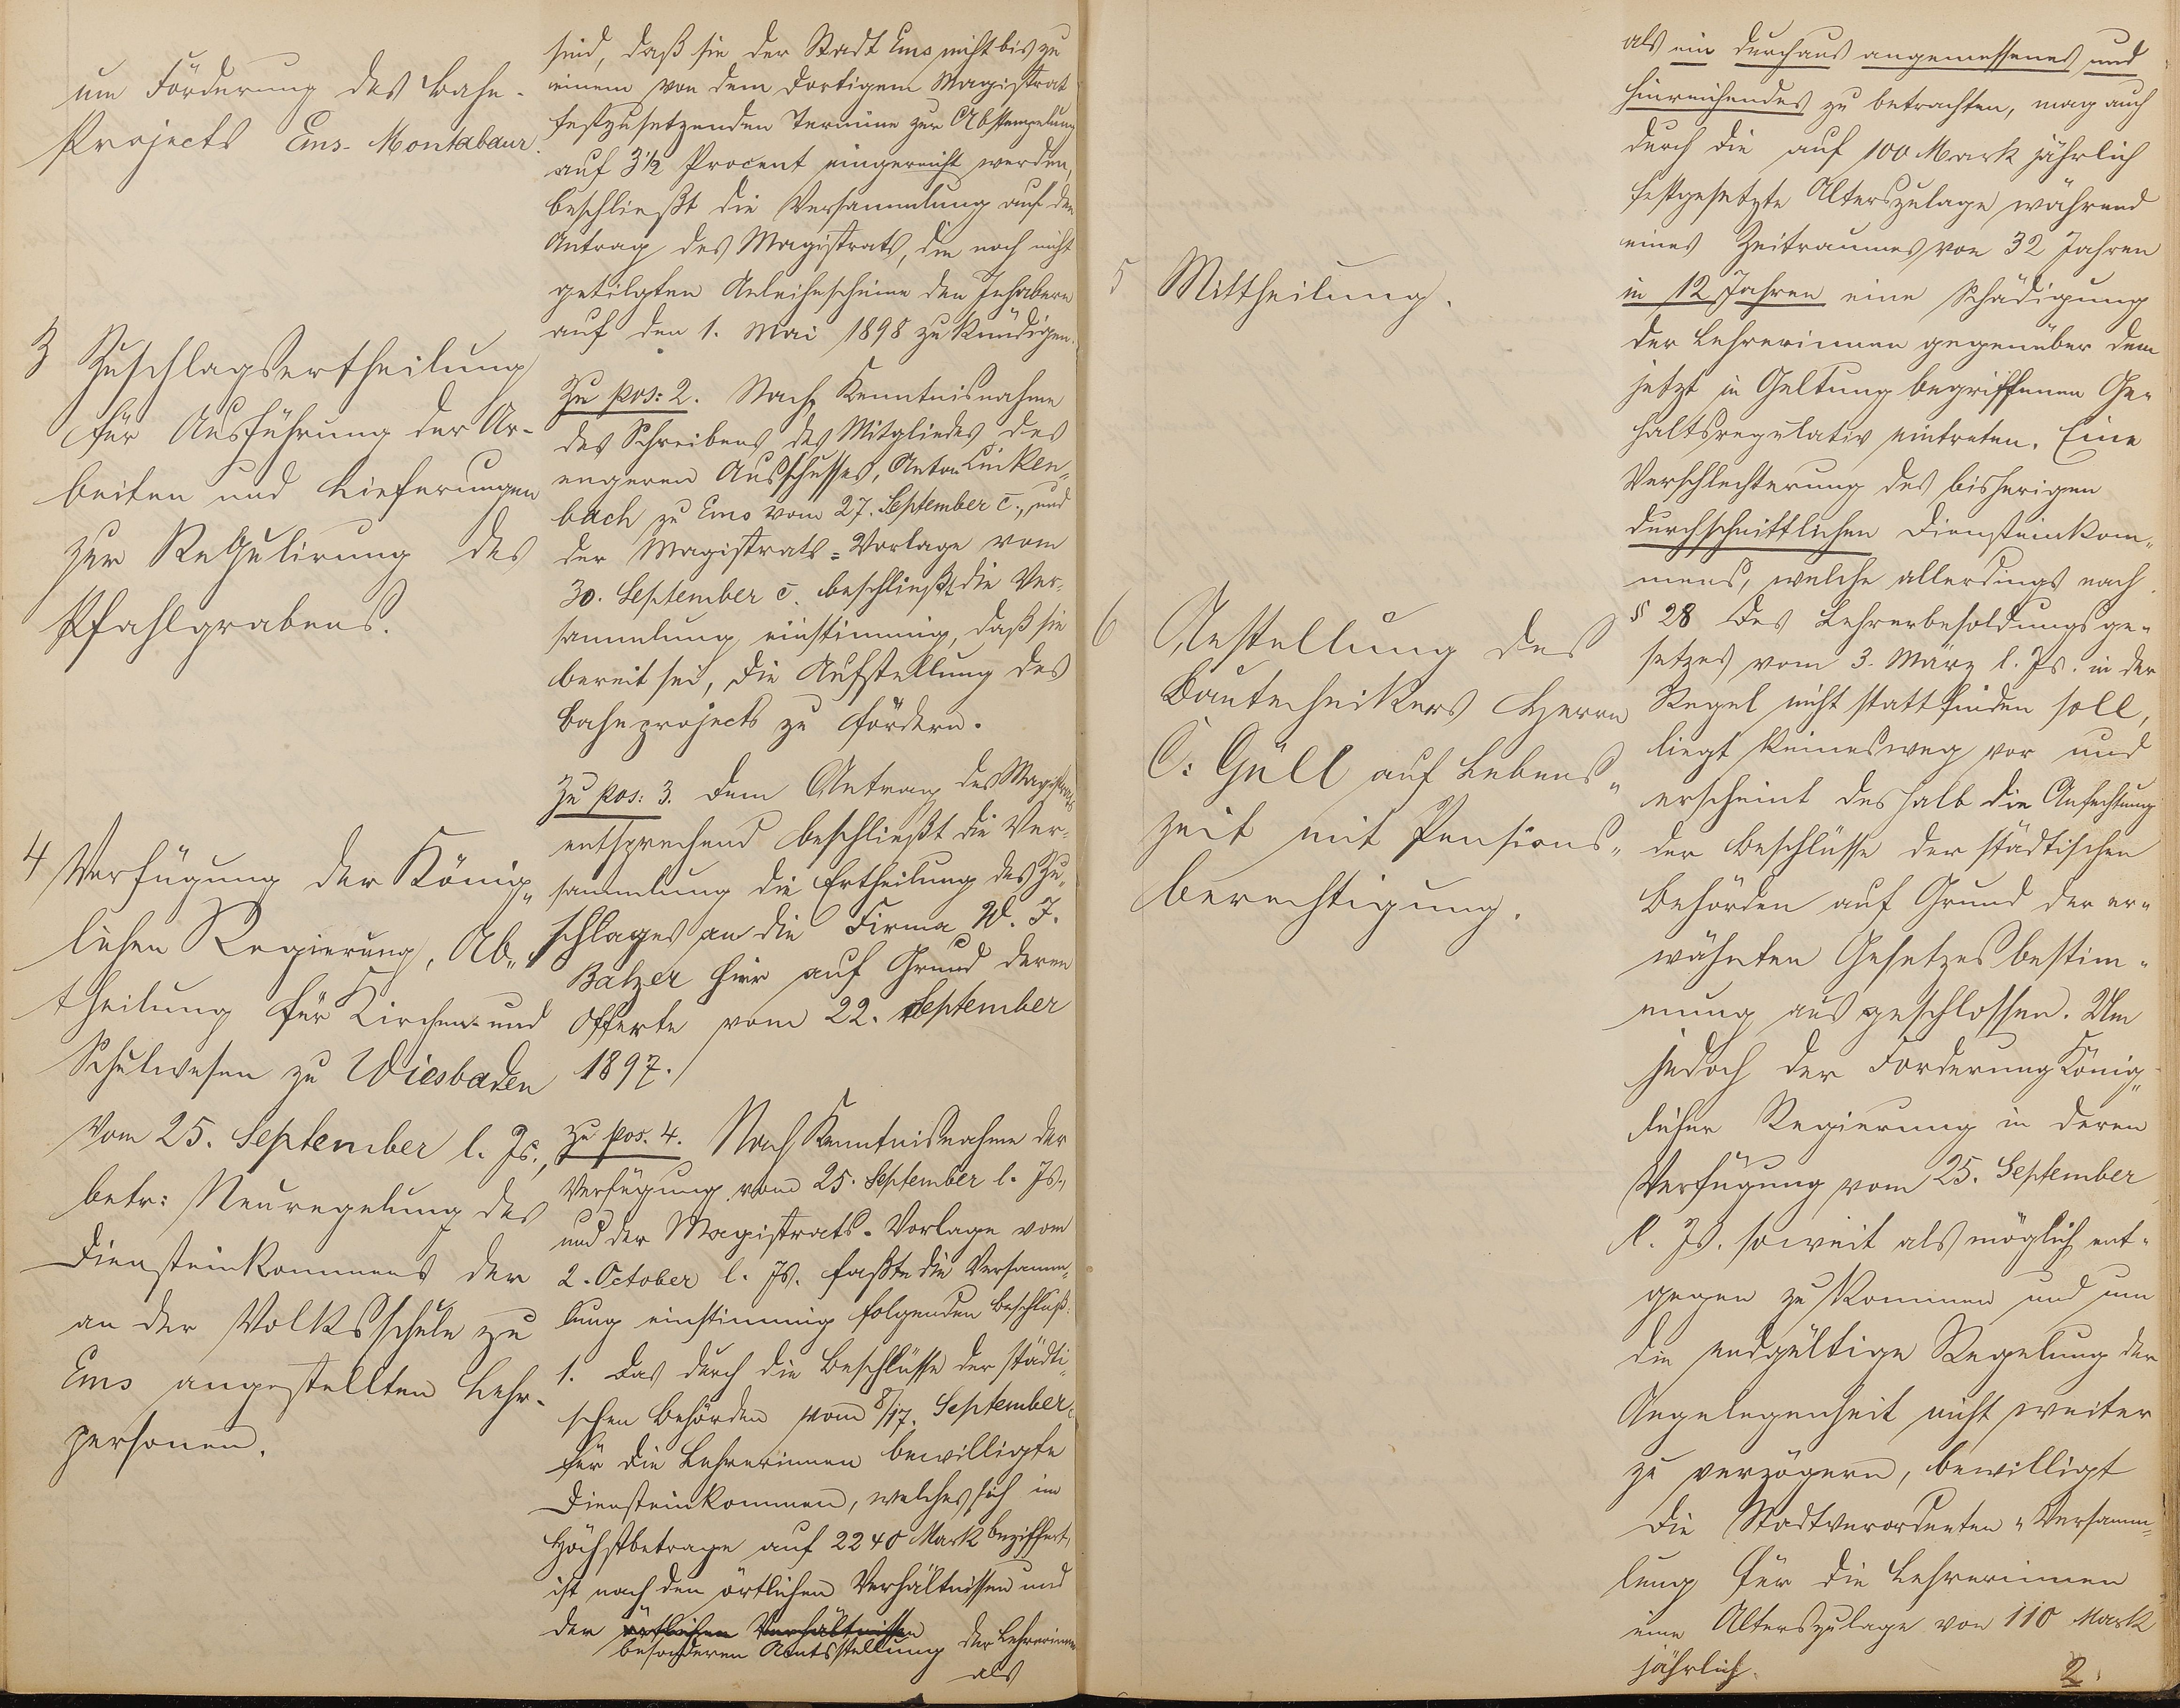 um Förderung des Bahn-
Projects Ems-Montabaur.
3 Zuschlagsertheilung
für Ausführung der Ar-
beiten und Lieferungen
zur Regulirung des
Pfahlgrabens.
4 Verfügung der König-
lichen Regierung, Ab-
theilung für Kirchen- und
Schulwesen zu Wiesbaden
vom 25. September l. Js.,
betr: Neuregelung des
Diensteinkommens der
an der Volksschule zu
Ems angestellten Lehr-
personen.
sind, daß sie der Stadt Ems nicht bis zu
einem von dem dortigen Magistrat
festzusetzenden Termine zur Abstempelung
auf 3½ Procent eingereicht werden,
beschließt die Versammlung auf den
Antrag des Magistrats, die noch nicht
getilgten Anleihescheine den Inhabern
auf den 1. Mai 1898 zu kündigen.
Zu pos: 2. Nach Kenntnisnahme
des Schreibens des Mitgliedes des
engeren Ausschusses, Anton Linken-
bach zu Ems vom 27. September c., und
der Magistrats-Vorlage vom
30. September c. beschließt die Ver-
sammlung einstimmig, daß sie
bereit sei, die Aufstellung des
Bahnprojects zu fördern.
Zu pos: 3. Dem Antrag des Magistrats
entsprechend beschließt die Ver-
sammlung die Ertheilung des Zu-
schlages an die Firma W. J.
Balzer hier auf Grund deren
Offerte vom 22. September
1897.
Zu pos. 4. Nach Kenntnißnahme der
Verfügung vom 25. September l. Js.,
und der Magistrats-Vorlage vom
2. October l. Js. faßte die Versamm-
lung einstimmig folgenden Beschluß:
1. Das durch die Beschlüsse der städti-
schen Behörden vom 8/17. September c.
für die Lehrerinnen bewilligte
Diensteinkommen, welches sich im
Höchstbetrage auf 2240 Mark beziffert,
ist nach den örtlichen Verhältnissen und
der örtlichen Verhältnissen
besonderen Amtsstellung der Lehrerinnen
als
5 Mittheilung.
6 Anstellung des
Bautechnikers Herrn
C. Güll auf Lebens-
zeit mit Pensions-
berechtigung.
als ein durchaus angemessenes und
hinreichendes zu betrachten, mag auch
durch die auf 100 Mark jährlich
festgesetzte Alterszulage während
eines Zeitraumes von 32 Jahren
in 12 Jahren eine Schädigung
der Lehrerinnen gegenüber dem
jetzt in Geltung begriffenen Ge-
haltsregulativ eintreten. Eine
Verschlechterung des bisherigen
durchschnittlichen Diensteinkom-
mens, welche allerdings nach
§ 28 des Lehrerbesoldungsge-
setzes vom 3. März l. Js. in der
Regel nicht stattfinden soll,
liegt keinesweg vor und
erscheint deshalb die Anfechtung
der Beschlüsse der städtischen
Behörden auf Grund der er-
wähnten Gesetzesbestim-
mung ausgeschlossen. Um
jedoch der Forderung König-
licher Regierung in deren
Verfügung vom 25. September
l. Js. soweit als möglich ent-
gegen zu kommen und um
die endgültige Regelung der
Angelegenheit nicht weiter
zu verzögern, bewilligt
die Stadtverordneten-Versamm-
lung für die Lehrerinnen
eine Alterszulage von 110 Mark
jährlich.
2.